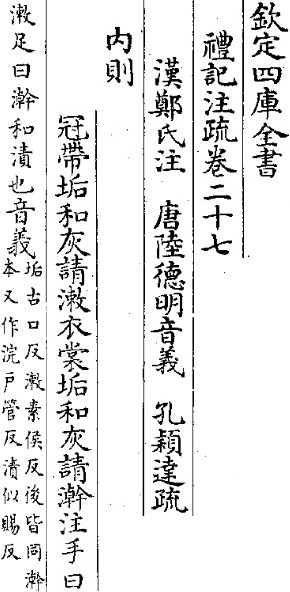 欽定四庫全書
禮記注疏卷二十七
漢鄭氏注 唐陸德明音義 孔穎達疏
內則
冠帶垢和灰請漱衣裳垢和灰請澣注手曰
漱足曰澣和漬也音義垢古口反漱素侯反後皆同澣
本又作浣戶管反漬似賜反